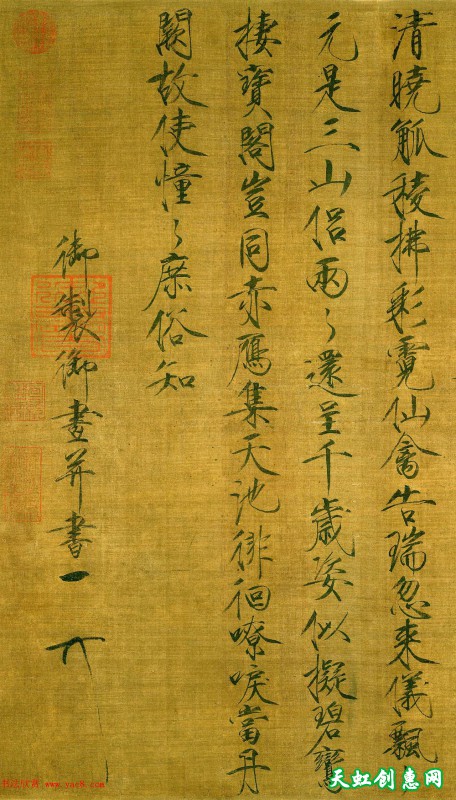 清曉觚稜拂彩霓仙禽告瑞忽來儀飄
元是三山侶兩〻還呈千歲姿似擬碧鸞
棲寶閣豈同赤鴈集天池徘徊嘹唳當丹
闕故使憧〻庶俗知
御製御畫并書
天虹创惠网